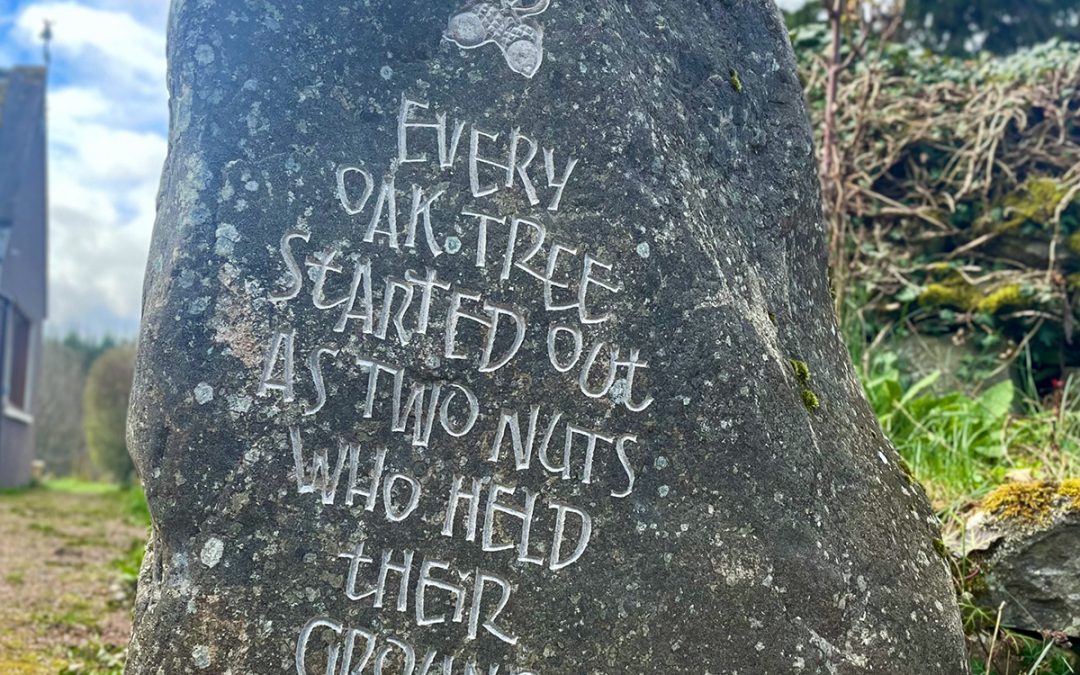 EVERY
OAK TREE
StARtED Out
AS TWO NUTS
WHO HELD
tHEIR
GROUND